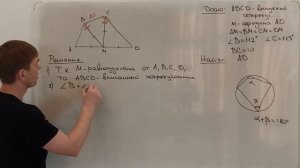 Дано: ABCD - выпуклый
четыреху.
M - середина AD
AM=BM=CM=DM
∠B=112° ∠C=113°
BC=10
Найти:
AD
B 10 C
A M D
Решение
1) Т.к. M-равноудалена от A, B, C, D,
то ABCD-вписанный четырехугольник.
2) ∠B+∠
α+β=180°